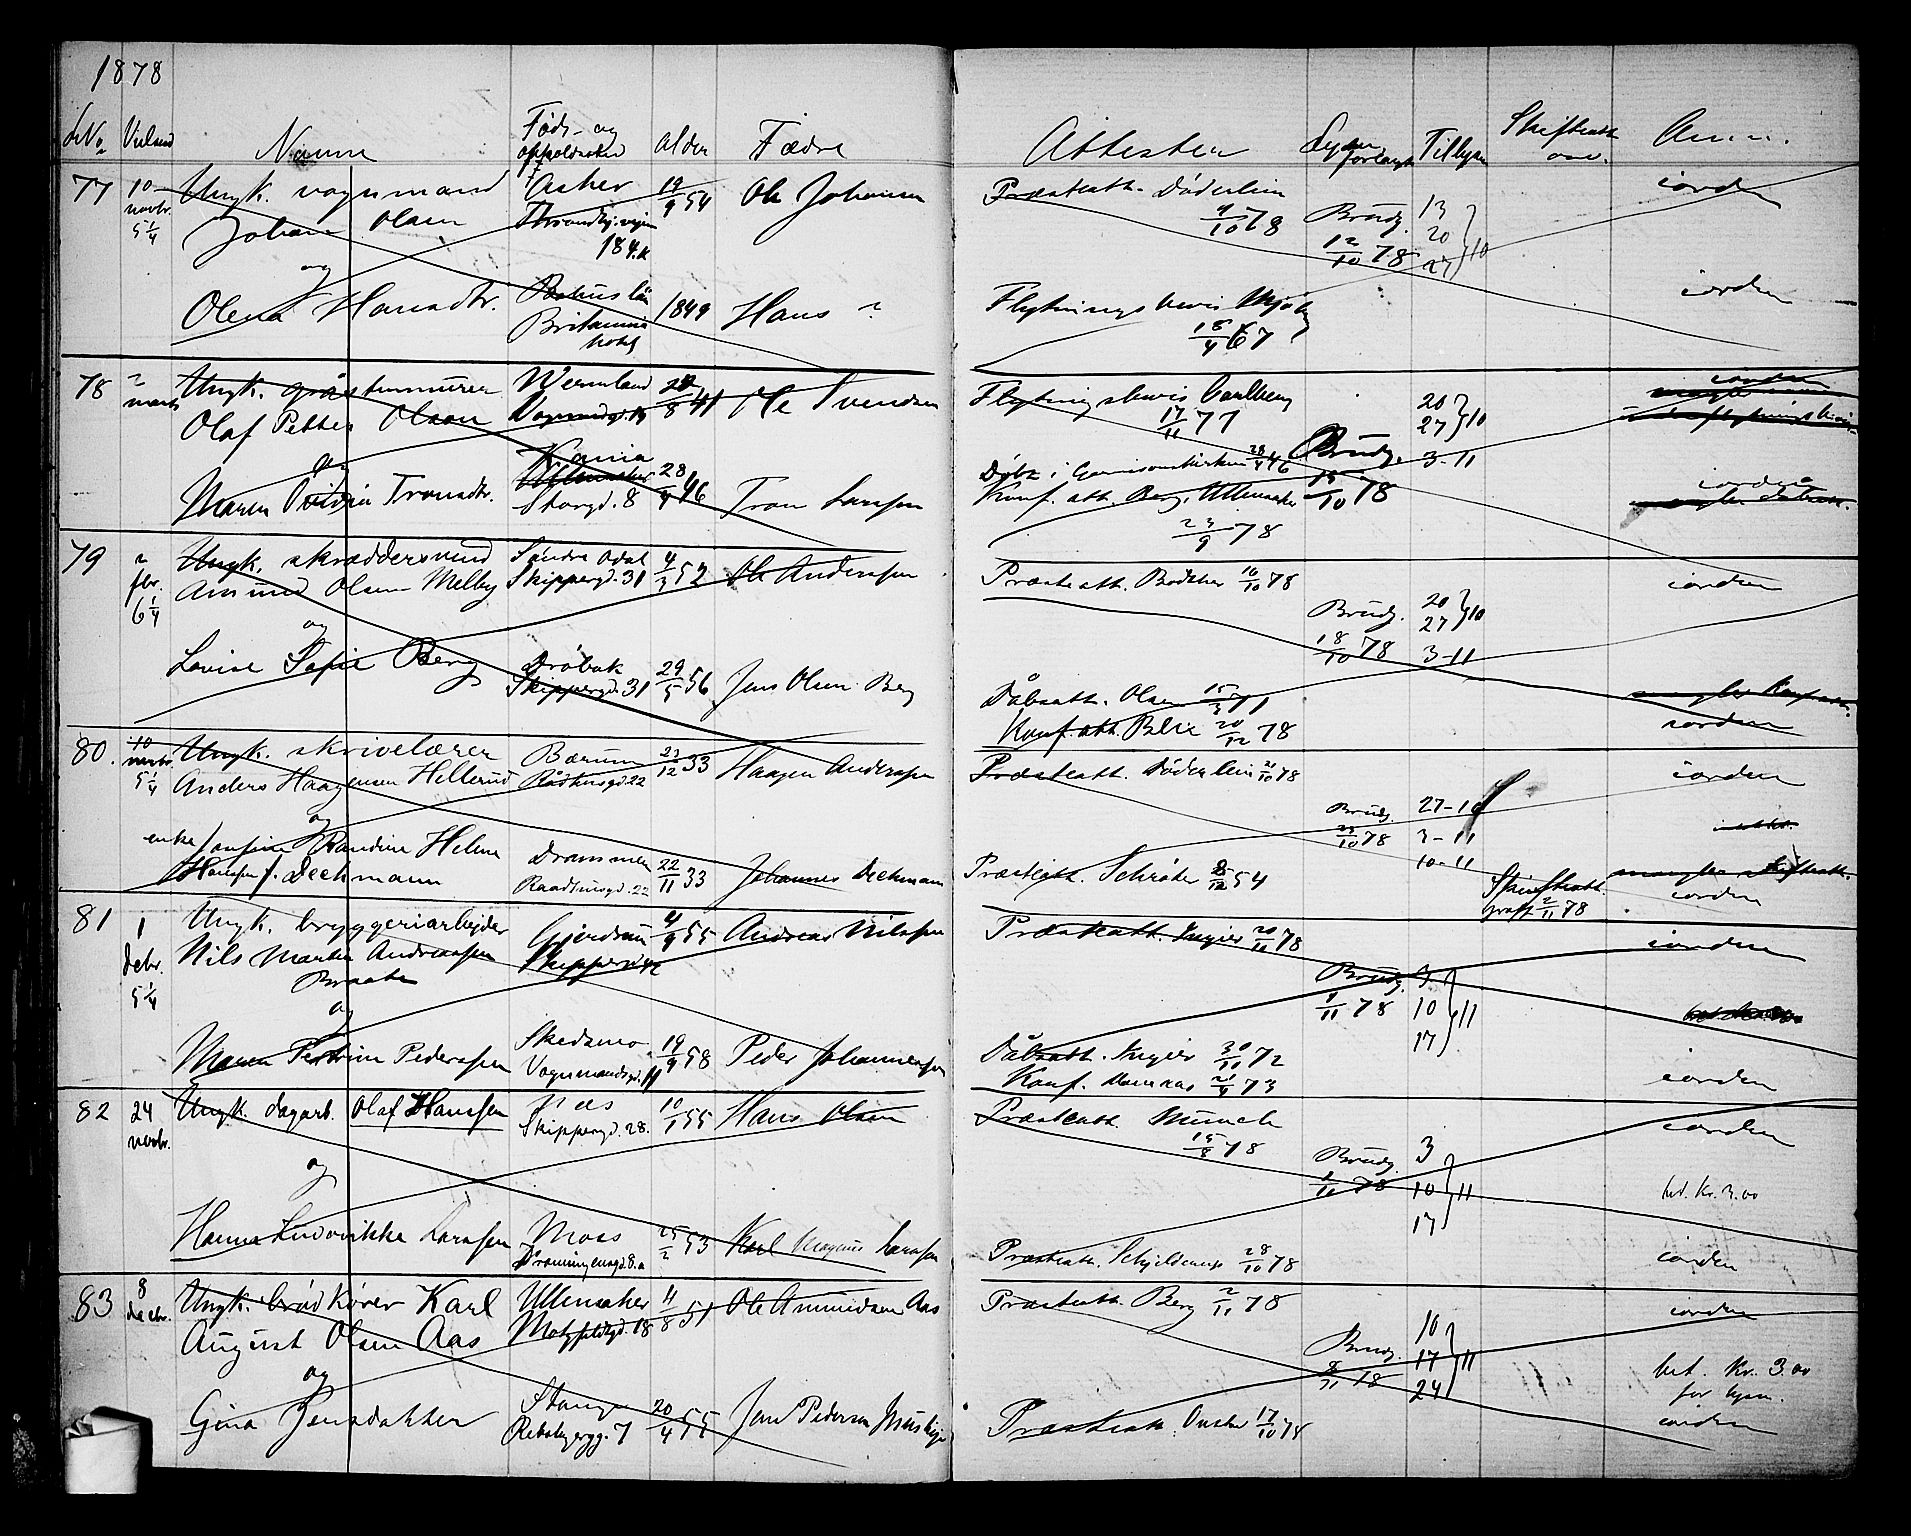 1878
No Vielsed Navne Føds- og opholdssted Alder Fædre Attester Lysn. forlangt Tillyses Skifteatt. osv. Anm.
77 10 novbr. 5 1/4
Ungk. vognmand
Johan Olsen
og
Olena Hansdtr.
Asker
184.k
19/9 54
Ole Johansen
Båhus län
Britannia hotel
1849
Hans ?
Præsteatt. Döderlein
9/10 78
Brudg.
12/10 78
13 20 27 } 10
iorden
Flytningsbevis
18/4 67
iorden
78 ? novbr.
Ungk. gråstensmurer
Olaf Petter Olsen
og
Maren Tronsdtr.
Wermland
Vognmandsgd.
28/8 41
Ole Svendsen
Storgd. 8
28/4 46
Tron Larssen
Flytningsbevis Carlberg
17/11 77
Brudg.
18/10 78
20 27 } 10
3-11
iorden
Døbt i Garnisonskirken 28/4 46
Konf. att. Berg, Ullensaker
23/9 78
iorden
79 ? fbr. 6 1/4
Ungk. skræddersvend
Amund Olsen Melby
og
Lovise Sofie Berg
Søndre Odal
Skippergd. 31
4/3 52
Ole Anderssen
Drøbak
Skippergd. 31
29/5 56
Jens Olsen Berg
Præsteatt. Bødtker 16/10 78
Brudg.
18/10 78
20 27 } 10
3-11
iorden
Dåbsatt. Olsen 15/3 71
Konf. att. Blix 20/12 78
iorden
80. 10 novbr. 5 1/4
Ungk. skrivelærer
Anders Haagensen Hellerud
og
enke Jonsine Randine Helene
Hanssen f. Dechmann
Bærum
Rådhusgd. 22
23/12 33
Haagen Anderssen
Drammen
Raadhusgd. 22
22/11 33
Johannes Dechmann
Præsteatt. Döderlein 21/10 78
Brudg.
23/10 78
27-10
3-11
10-11
iorden
Præsteatt. Schrøter 8/12 54
Skifteatt.
2/11 78
mangler skifteatt.
iorden
81 1 Decbr. 5 1/4
Ungk. bryggeriarbejder
Nils Martin Andreassen
Braaten
og
Maren Petrine Pederssen
Gjerdrum
Skippergd. 42
4/9 55
Andreas Nilssen
Skedsmo
Vognmandsgd. 11
19/9 58
Peder Johannessen
Præsteatt. Ingier 20/11 78
Brudg.
1/11 78
3 10 17 } 11
iorden
Dåbsatt. Ingier 30/11 72
Konf. 20/4 73
iorden
82 24 novbr.
Ungk. dagarb. Olaf Hanssen
og
Hanna Ludovikke Larssen
Næs
Skippergd. 28.
10/1 55
Hans Olsen
Moss
Dronningensgd. 8.a
25/2 53
Karl Magnus Larssen
Præsteatt. Munch
15/8 78
Brudg.
1/11 78
3 10 17 } 11
iorden
bet. Kr. 3.00
Præsteatt. Schjelderup 28/10 78
iorden
83 8 Decbr.
Ungk. brødkører Karl
August Olsen Aas
og
Gina Jensdatter
Ullensaker
Motzfeldtsgd. 18
11/8 51
Ole Amundsen Aas
Stange
Rebslagergg. 7
20/4 55
Jens Pedersen
Præsteatt. Berg 2/11 78
Brudg.
8/11 78
10 17 24 } 11
iorden
bet. Kr. 3.00
for lysn.
Præsteatt. 17/10 78
iorden